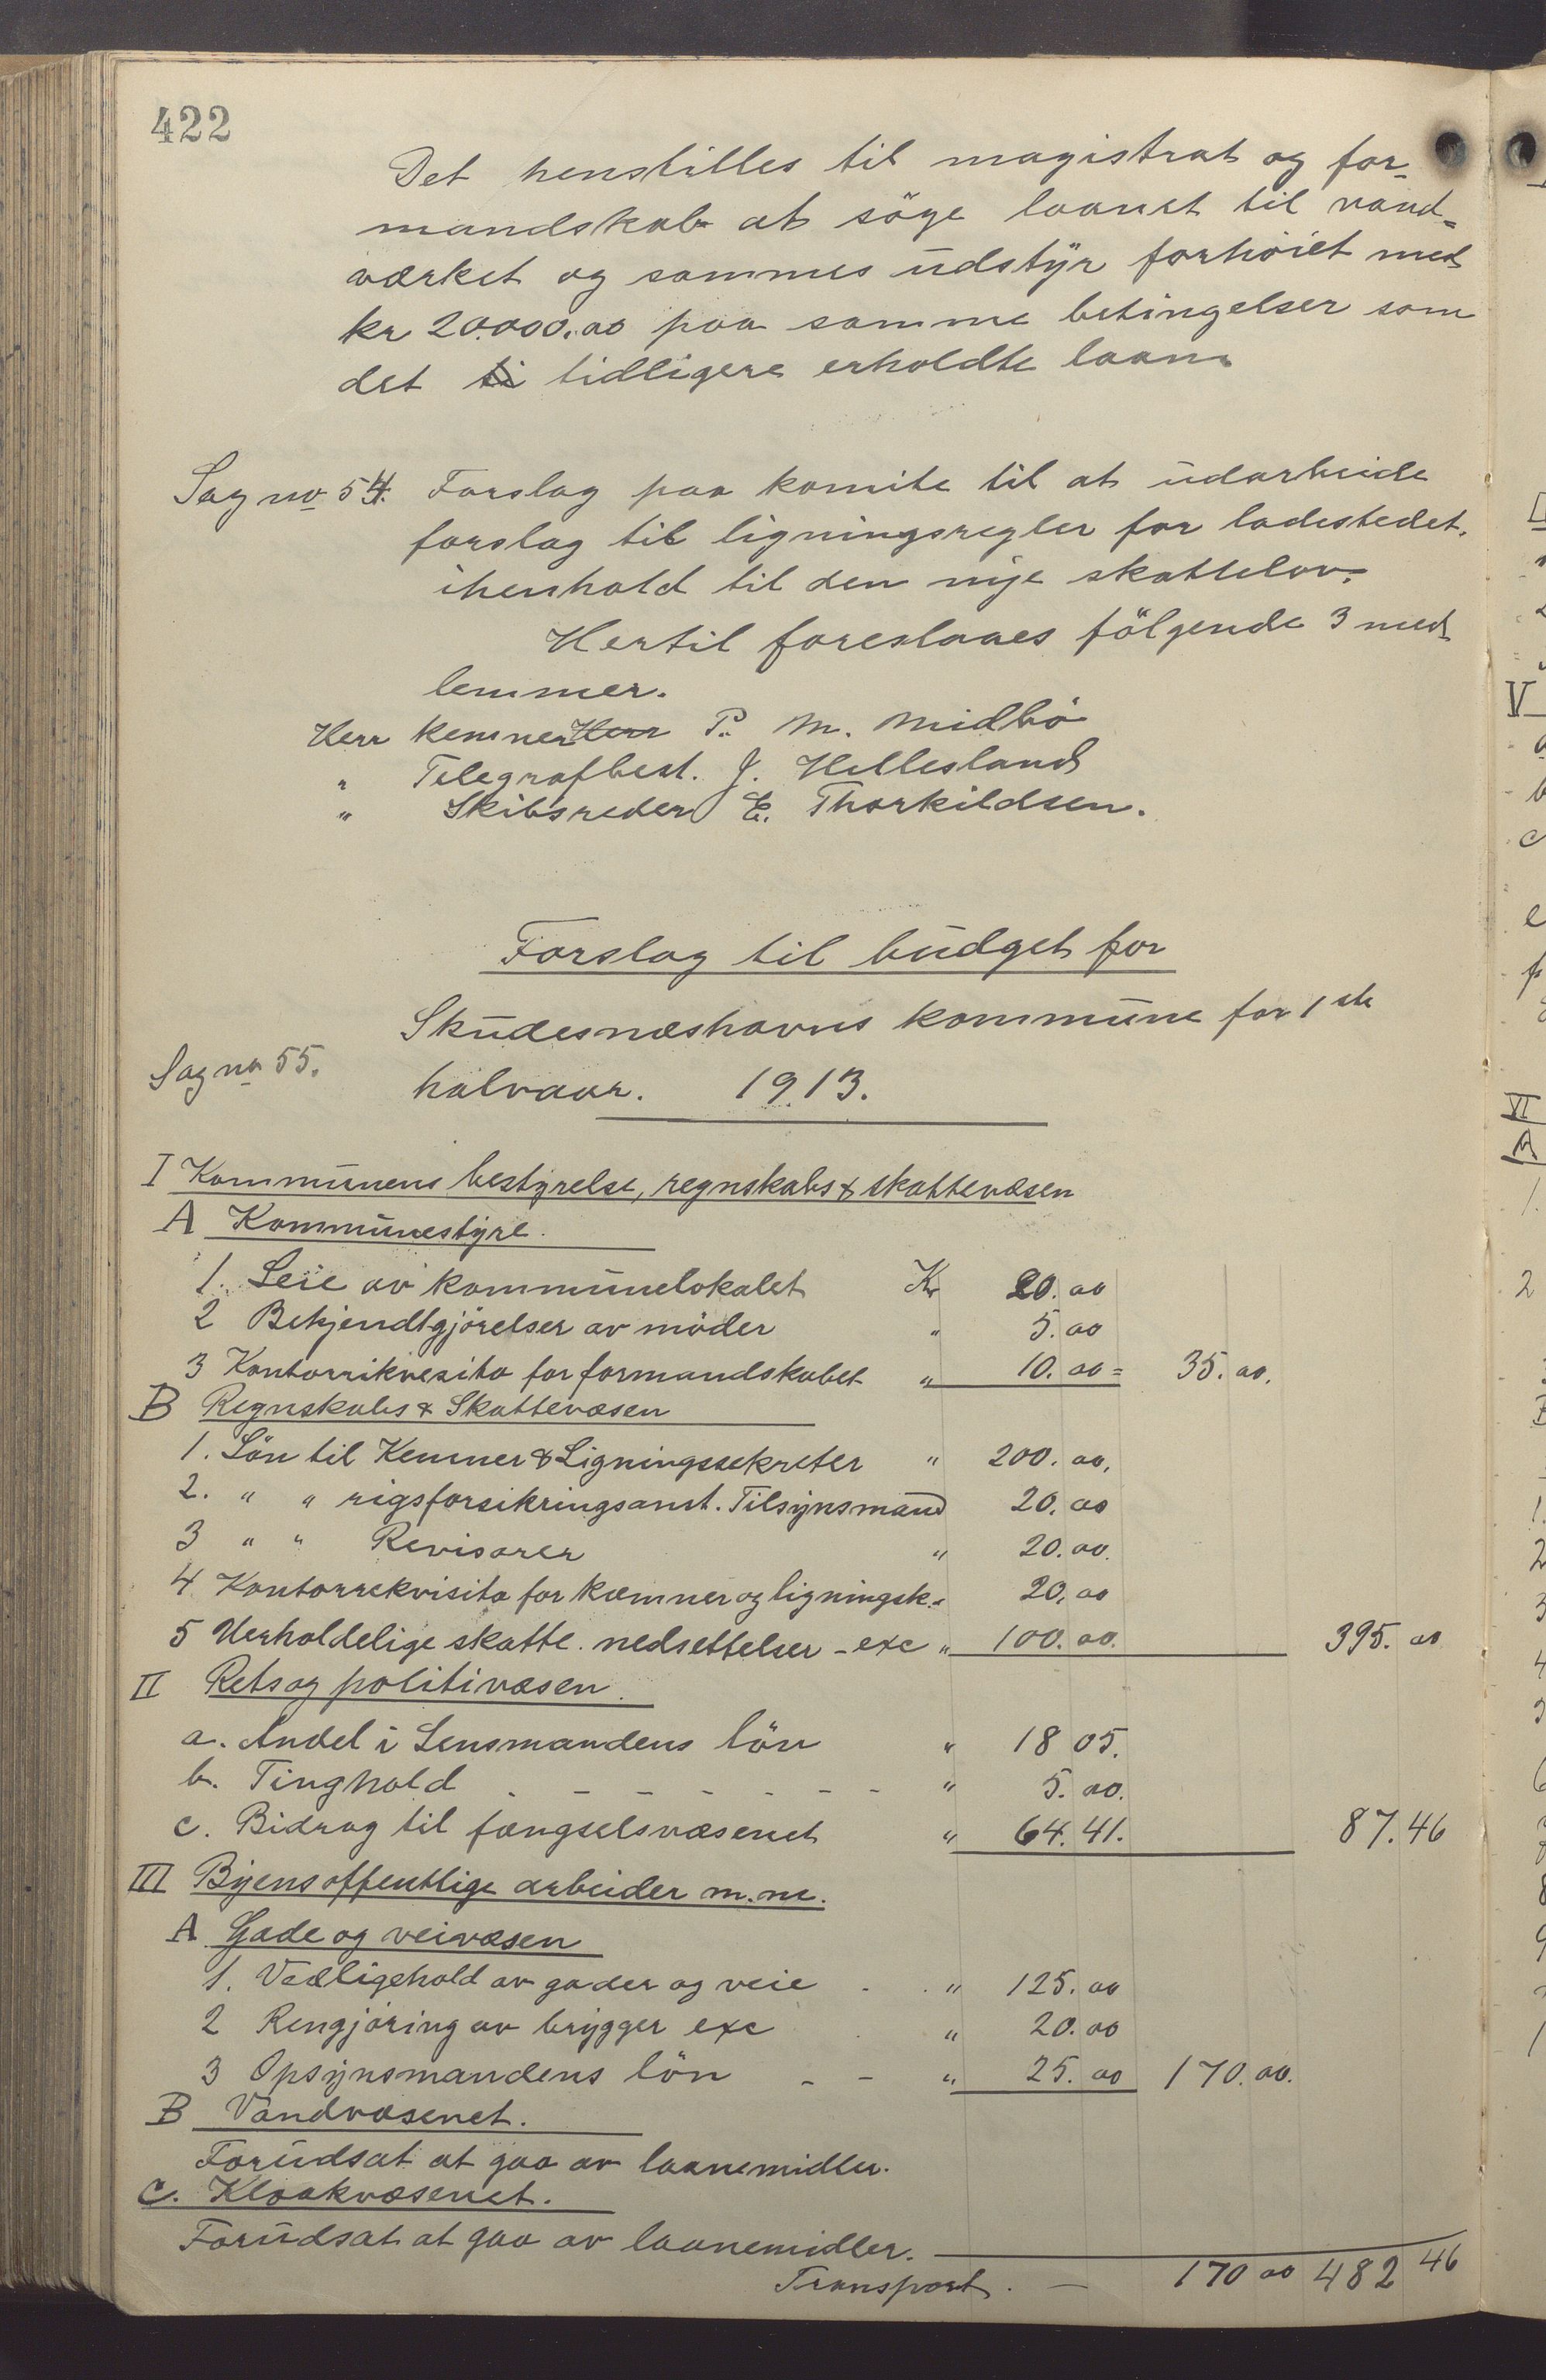 422
Det henstilles til magistrat og for-
mandskab at söge laanet til vand-
værket og sammes udstyr forhöiet med
kr 20.000.00 paa samme betingelser som
det ti tidligere erholdte laan
Sag no 54. Forslag paa komite til at udarbeide
forslag til ligningsregler for ladestedet.
ihenhold til den nye skattelov.
Hertil foreslaaes fölgende 3 med
lemmer.
Herr kemner Herr P. M. Midbö
" Telegrafbest. J. Hellesland
" Skibsreder E. Thorkildsen.
Forslag til budget for
Skudesnæshavns kommune for 1ste
Sag no 55. halvaar. 1913.
I Kommunens bestyrelse, regnskabs & skattevæsen
A Kommunestyre.
1. Leie av kommunelokalet Kr 20.00
2 Bekjendtgjörelser av möder " 5.00
3 Kontorrikvesita for formandskabet " 10.00 = 35.00.
B Regnskabs & Skattevæsen
1. Lön til Kemner & Ligningssekreter " 200.00.
2. " " rigsforsikringsanst. Tilsynsmand 20.00
3 " " Revisorer " 20.00.
4 Kontorrekvisita for kæmner og ligningsk. " 20.00
5 Uerholdelige skatte. nedsettelser - exc " 100.00. 395.00
II Rets og politivæsen.
a. Andel i Lensmandens lön " 18 05.
b. Tinghold - - - - - - " 5.00.
c. Bidrag til fængselsvæsenet " 64.41. 87.46
III Byens offentlige arbeider m.m.
A Gade og veivæsen
1. Vedligehold av gader og veie - . " 125.00
2 Rengjöring av brygger exc " 20.00
3 Opsynsmandens lön - - " 25.00 170.00.
B Vandvæsenet.
Forudsat at gaa av laanemidler.
C. Kloakvæsenet.
Forudsat at gaa av laanemidler.
Transport. - 170 00 482 46